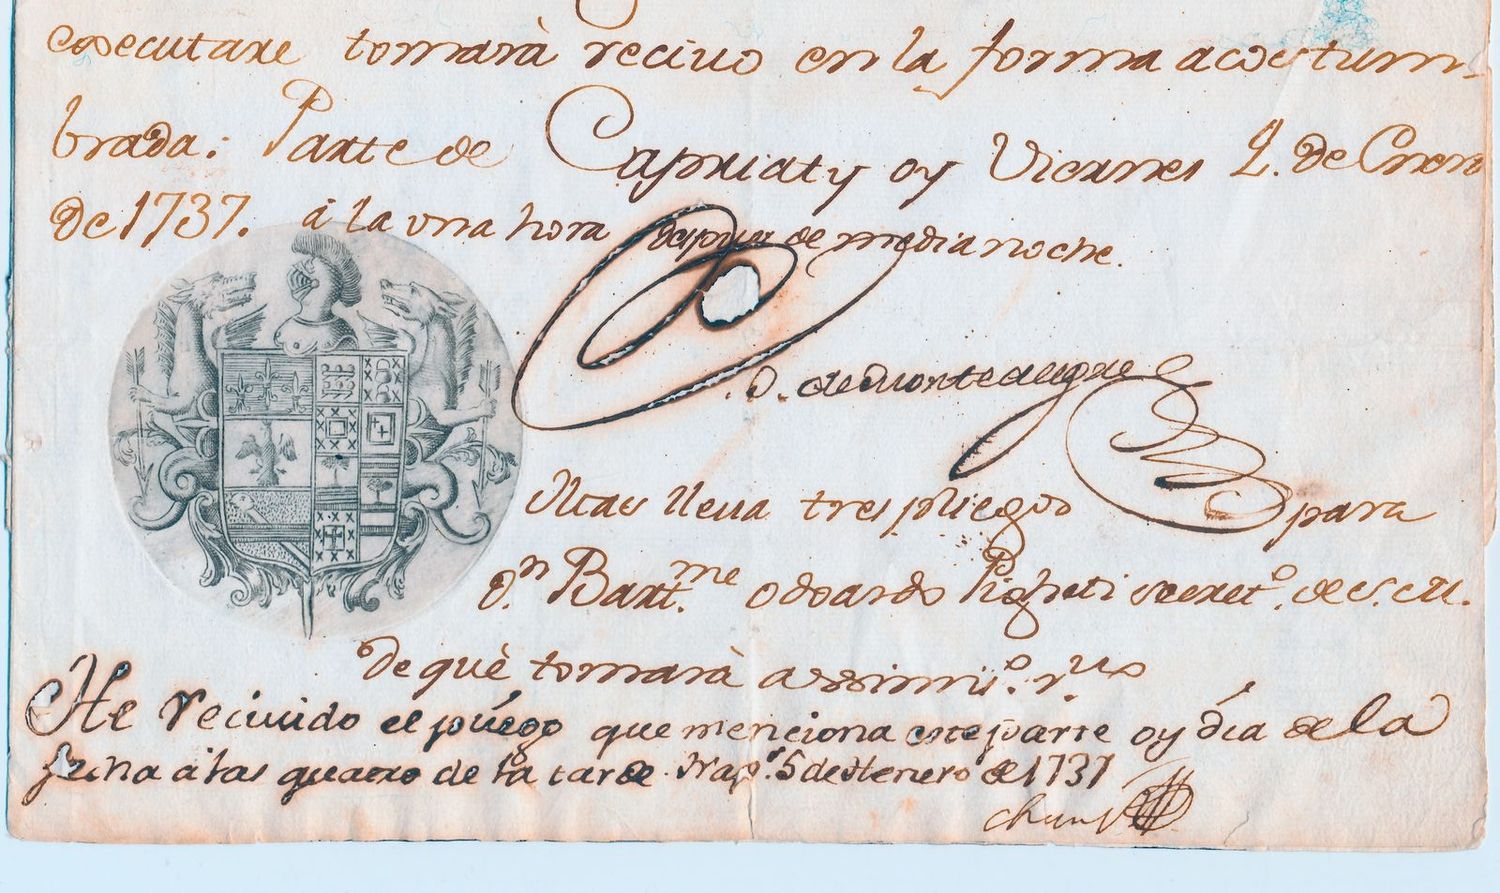 executare tomarà reciuo en la forma acostum-
brada: Parte de Capriaty oy Viernes 2. de Enero
de 1737. á la una hora despues de media noche.
D. de Montealegre
Mas lleua tres pliegos para
Dn. Bart.me Odoardo Pigheti secret.o de S. M.
de què tomarà assimis.o r.uo
He reciuido el pliego que menciona este parte oy dia de la
fecha á las quatro de la tarde. Nap.s 5 de Henero de 1737